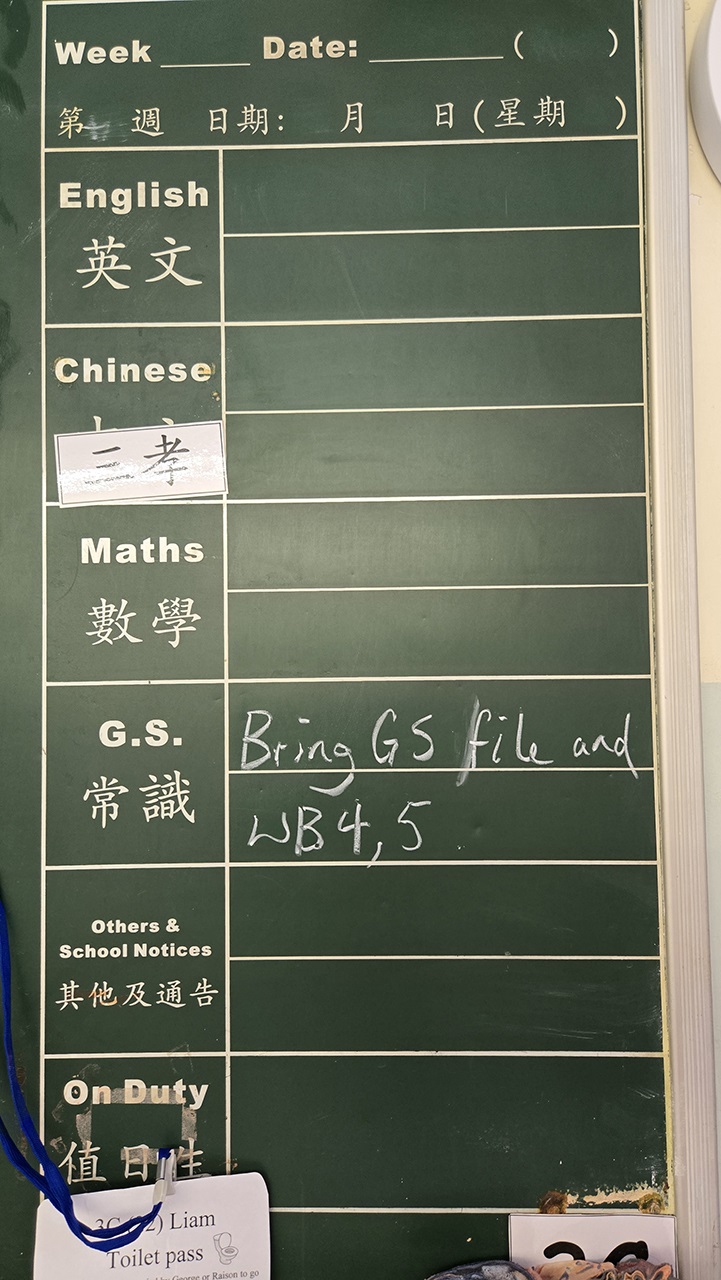 Week ____ Date: ______ ( )
第 週 日期: 月 日(星期 )
English
英文
Chinese
三考
Maths
數學
G.S.
常識
Bring GS file and
WB4,5
Others &
School Notices
其他及通告
On Duty
值日生
Liam
Toilet pass
by George or Raison to go